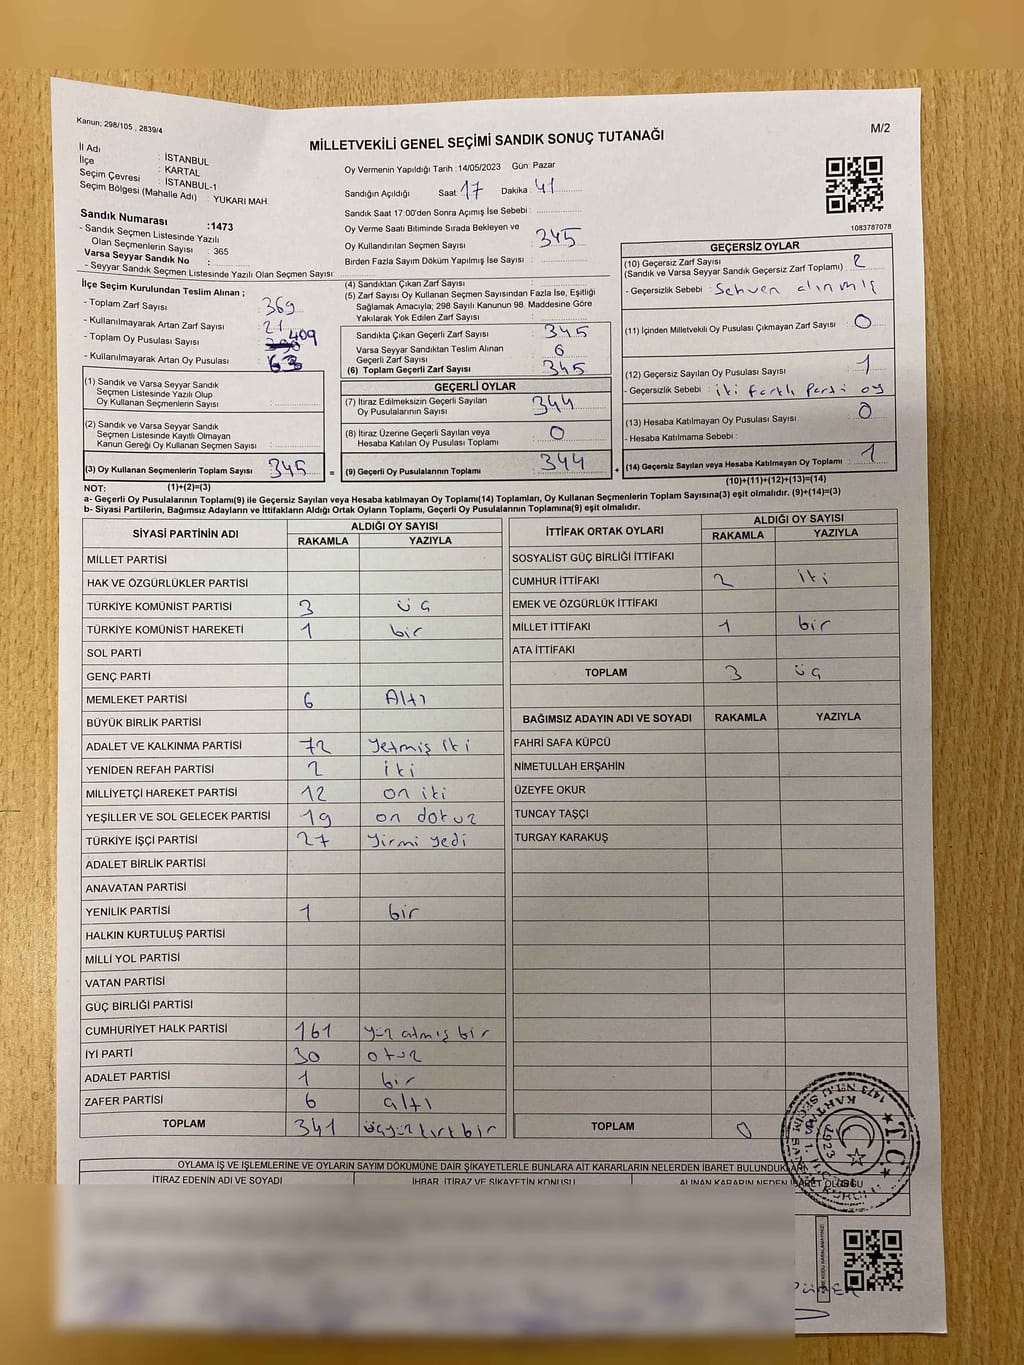 Kanun; 298/105 , 2839/4
MİLLETVEKİLİ GENEL SEÇİMİ SANDIK SONUÇ TUTANAĞI
M/2
İl Adı : İSTANBUL
İlçe : KARTAL
Seçim Çevresi : İSTANBUL-1
Seçim Bölgesi (Mahalle Adı) : YUKARI MAH
Sandık Numarası :1473
- Sandık Seçmen Listesinde Yazılı
Olan Seçmenlerin Sayısı : 365
Varsa Seyyar Sandık No :
- Seyyar Sandık Seçmen Listesinde Yazılı Olan Seçmen Sayısı:
Oy Vermenin Yapıldığı Tarih :14/05/2023 Gün: Pazar
Sandığın Açıldığı Saat: 17 Dakika: 41
Sandık Saat 17:00'den Sonra Açımış İse Sebebi :
Oy Verme Saati Bitiminde Sırada Bekleyen ve
Oy Kullandırılan Seçmen Sayısı : 345
Birden Fazla Sayım Döküm Yapılmış İse Sayısı :
1083787078
İlçe Seçim Kurulundan Teslim Alınan ;
- Toplam Zarf Sayısı : 369
- Kullanılmayarak Artan Zarf Sayısı : 21
- Toplam Oy Pusulası Sayısı : 409
- Kullanılmayarak Artan Oy Pusulası : 63
(1) Sandık ve Varsa Seyyar Sandık
Seçmen Listesinde Yazılı Olup
Oy Kullanan Seçmenlerin Sayısı :
(2) Sandık ve Varsa Seyyar Sandık
Seçmen Listesinde Kayıtlı Olmayan
Kanun Gereği Oy Kullanan Seçmen Sayısı :
(3) Oy Kullanan Seçmenlerin Toplam Sayısı : 345 =
(1)+(2)=(3)
(4) Sandıktan Çıkan Zarf Sayısı :
(5) Zarf Sayısı Oy Kullanan Seçmen Sayısından Fazla İse, Eşitliği
Sağlamak Amacıyla; 298 Sayılı Kanunun 98. Maddesine Göre
Yakılarak Yok Edilen Zarf Sayısı :
Sandıkta Çıkan Geçerli Zarf Sayısı : 345
Varsa Seyyar Sandıktan Teslim Alınan
Geçerli Zarf Sayısı
(6) Toplam Geçerli Zarf Sayısı : 345
GEÇERLİ OYLAR
(7) İtiraz Edilmeksizin Geçerli Sayılan
Oy Pusulalarının Sayısı : 344
(8) İtiraz Üzerine Geçerli Sayılan veya
Hesaba Katılan Oy Pusulası Toplamı : 0
(9) Geçerli Oy Pusulalarının Toplamı : 344 +
GEÇERSİZ OYLAR
(10) Geçersiz Zarf Sayısı : 2
(Sandık ve Varsa Seyyar Sandık Geçersiz Zarf Toplamı)
- Geçersizlik Sebebi : Sehven alınmış
(11) İçinden Milletvekili Oy Pusulası Çıkmayan Zarf Sayısı : 0
(12) Geçersiz Sayılan Oy Pusulası Sayısı : 1
- Geçersizlik Sebebi : iki farklı parti oy
(13) Hesaba Katılmayan Oy Pusulası Sayısı : 0
- Hesaba Katılmama Sebebi :
(14) Geçersiz Sayılan veya Hesaba Katılmayan Oy Toplamı : 1
(10)+(11)+(12)+(13)=(14)
NOT:
a- Geçerli Oy Pusulalarının Toplamı(9) ile Geçersiz Sayılan veya Hesaba katılmayan Oy Toplamı(14) Toplamları, Oy Kullanan Seçmenlerin Toplam Sayısına(3) eşit olmalıdır. (9)+(14)=(3)
b- Siyasi Partilerin, Bağımsız Adayların ve İttifakların Aldığı Ortak Oyların Toplamı, Geçerli Oy Pusulalarının Toplamına(9) eşit olmalıdır.
SİYASİ PARTİNİN ADI ALDIĞI OY SAYISI
RAKAMLA YAZIYLA
MİLLET PARTİSİ
HAK VE ÖZGÜRLÜKLER PARTİSİ
TÜRKİYE KOMÜNİST PARTİSİ 3 üç
TÜRKİYE KOMÜNİST HAREKETİ 1 bir
SOL PARTİ
GENÇ PARTİ
MEMLEKET PARTİSİ 6 Altı
BÜYÜK BİRLİK PARTİSİ
ADALET VE KALKINMA PARTİSİ 72 Yetmiş iki
YENİDEN REFAH PARTİSİ 2 iki
MİLLİYETÇİ HAREKET PARTİSİ 12 on iki
YEŞİLLER VE SOL GELECEK PARTİSİ 19 on dokuz
TÜRKİYE İŞÇİ PARTİSİ 27 Yirmi yedi
ADALET BİRLİK PARTİSİ
ANAVATAN PARTİSİ
YENİLİK PARTİSİ 1 bir
HALKIN KURTULUŞ PARTİSİ
MİLLİ YOL PARTİSİ
VATAN PARTİSİ
GÜÇ BİRLİĞİ PARTİSİ
CUMHURİYET HALK PARTİSİ 161 yüz atmış bir
İYİ PARTİ 30 otuz
ADALET PARTİSİ 1 bir
ZAFER PARTİSİ 6 altı
TOPLAM 341 üçyüz kırk bir
İTTİFAK ORTAK OYLARI ALDIĞI OY SAYISI
RAKAMLA YAZIYLA
SOSYALIST GÜÇ BİRLİĞİ İTTİFAKI
CUMHUR İTTİFAKI 2 iki
EMEK VE ÖZGÜRLÜK İTTİFAKI
MİLLET İTTİFAKI 1 bir
ATA İTTİFAKI
TOPLAM 3 üç
BAĞIMSIZ ADAYIN ADI VE SOYADI RAKAMLA YAZIYLA
FAHRİ SAFA KÜPCÜ
NİMETULLAH ERŞAHİN
ÜZEYFE OKUR
TUNCAY TAŞÇI
TURGAY KARAKUŞ
TOPLAM 0
T.C.
KARTAL
1473 NO.LU
1923
OYLAMA İŞ VE İŞLEMLERİNE VE OYLARIN SAYIM DÖKÜMÜNE DAİR ŞİKAYETLERLE BUNLARA AİT KARARLARIN NELERDEN İBARET BULUNDUKLARI
İTİRAZ EDENİN ADI VE SOYADI İHBAR, İTİRAZ VE ŞİKAYETİN KONUSU ALINAN KARARIN NEDEN İBARET OLDUĞU